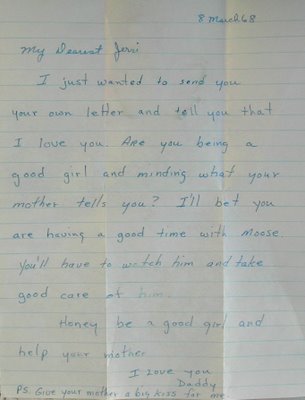 8 March 68
My Dearest Jerri
I just wanted to send you
your own letter and tell you that
I love you. Are you being a
good girl and minding what your
mother tells you? I'll bet you
are having a good time with Moose.
You'll have to watch him and take
good care of him.
Honey be a good girl and
help your mother
I Love you
Daddy
PS. Give your mother a big kiss for me.